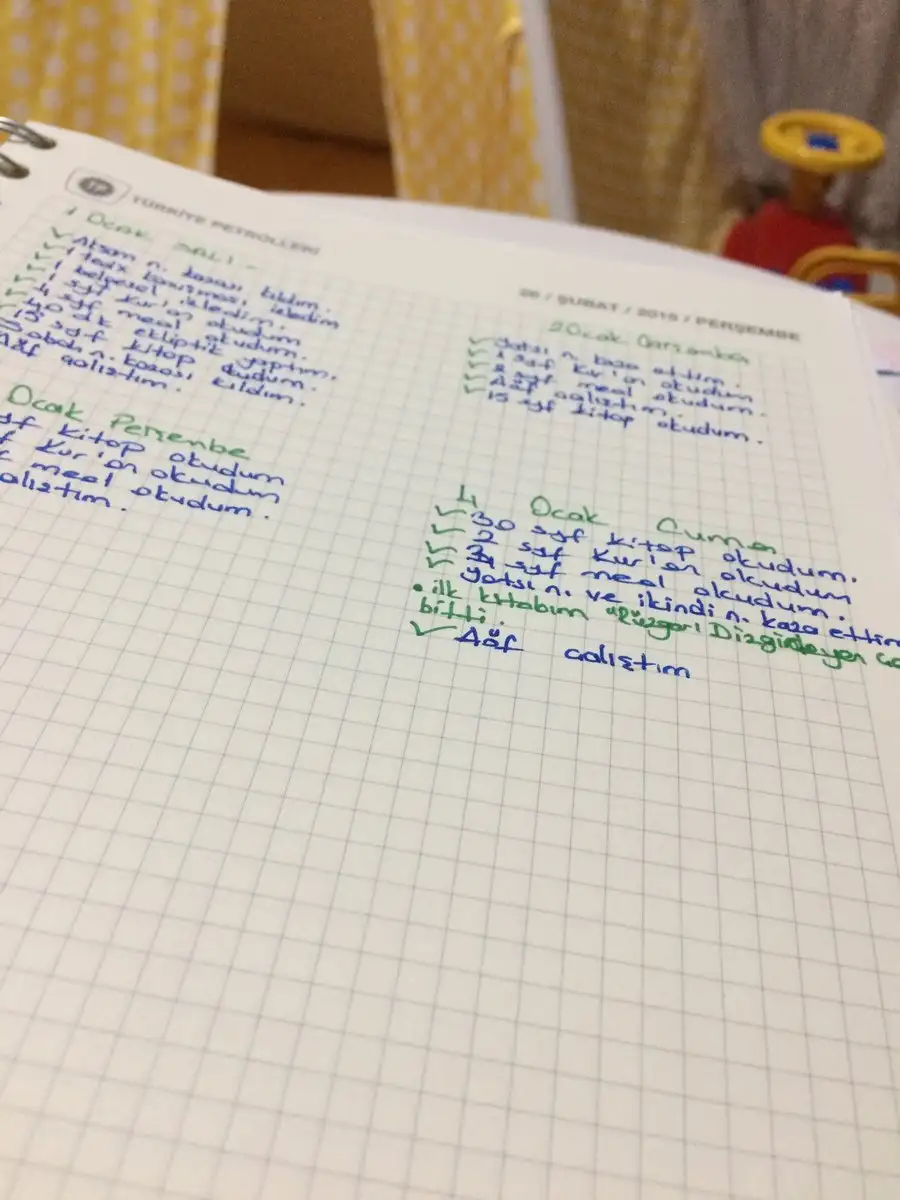 TP TÜRKİYE PETROLLERİ
26 / ŞUBAT / 2015 / PERŞEMBE
1 Ocak SALI -
✓ Akşam n. kazası kıldım.
✓ 1 tedx konuşması izledim
✓ 1 belgesel izledim.
✓ 4 syf kur'an okudum
✓ 4 syf meal okudum.
dk ekliptik yaptım.
15 syf kitap okudum.
Sabah n. kazası kıldım.
Aöf çalıştım.
2 Ocak Çarşamba
✓ yatsı n. kaza ettim.
✓ syf kur'an okudum
✓ 2 syf meal okudum.
✓ Aöf çalıştım.
✓ 15 syf kitap okudum.
Ocak Perşenbe
syf kitap okudum
kur'an okudum
meal okudum.
çalıştım.
4 Ocak Cuma
✓ 30 syf kitap okudum.
✓ 2 syf kur'an okudum
✓ syf meal okudum.
✓ yatsı n. ve ikindi n. kaza ettim
• ilk kitabım "Rüzgarı Dizginleyen
bitti.
✓ Aöf çalıştım